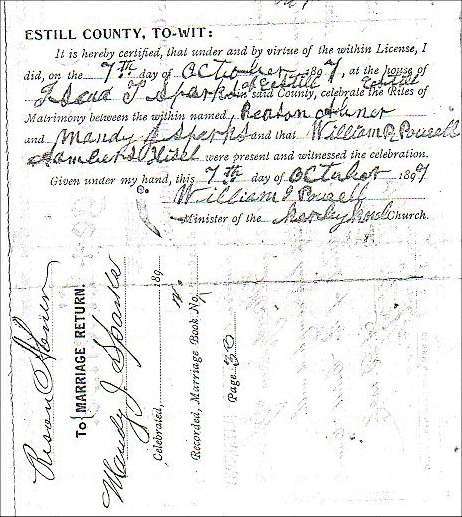 ESTILL COUNTY, TO-WIT:
It is hereby certified, that under and by virtue of the within License, I
did, on the 7th day of October 1897, at the house of
Isaac T Sparks of Estill Estill
in said County, celebrate the Rites of
Matrimony between the within named, Reason
and Mandy J Sparks and that William Powell
were present and witnessed the celebration.
Given under my hand, this 7th day of October 1897
William J Powell
Minister of the Church.
Mandy J Sparks
To
MARRIAGE RETURN.
Celebrated, 189
Recorded, Marriage Book No.
Page 30